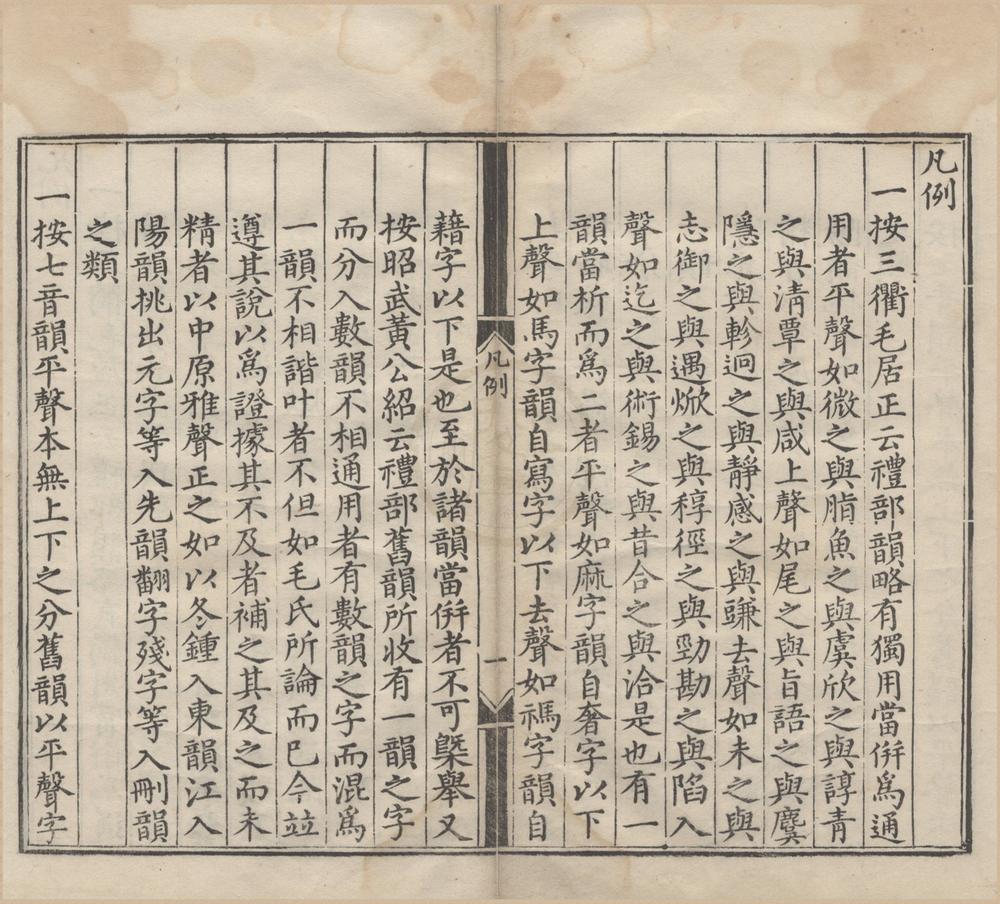 凡例
一按三衢毛居正云禮部韻略有獨用當併爲通
用者平聲如微之與脂魚之與虞欣之與諄青
之與清覃之與咸上聲如尾之與旨語之與麌
隱之與軫迥之與靜感之與豏去聲如未之與
志御之與遇焮之與稕徑之與勁勘之與陷入
聲如迄之與術錫之與昔合之與洽是也有一
韻當析而爲二者平聲如麻字韻自奢字以下
上聲如馬字韻自寫字以下去聲如禡字韻自
凡例
一
藉字以下是也至於諸韻當併者不可槩舉又
按昭武黃公紹云禮部舊韻所收有一韻之字
而分入數韻不相通用者有數韻之字而混爲
一韻不相諧叶者不但如毛氏所論而已今竝
遵其說以爲證據其不及者補之其及之而未
精者以中原雅聲正之如以冬鍾入東韻江入
陽韻挑出元字等入先韻翻字殘字等入刪韻
之類
一按七音韻平聲本無上下之分舊韻以平聲字